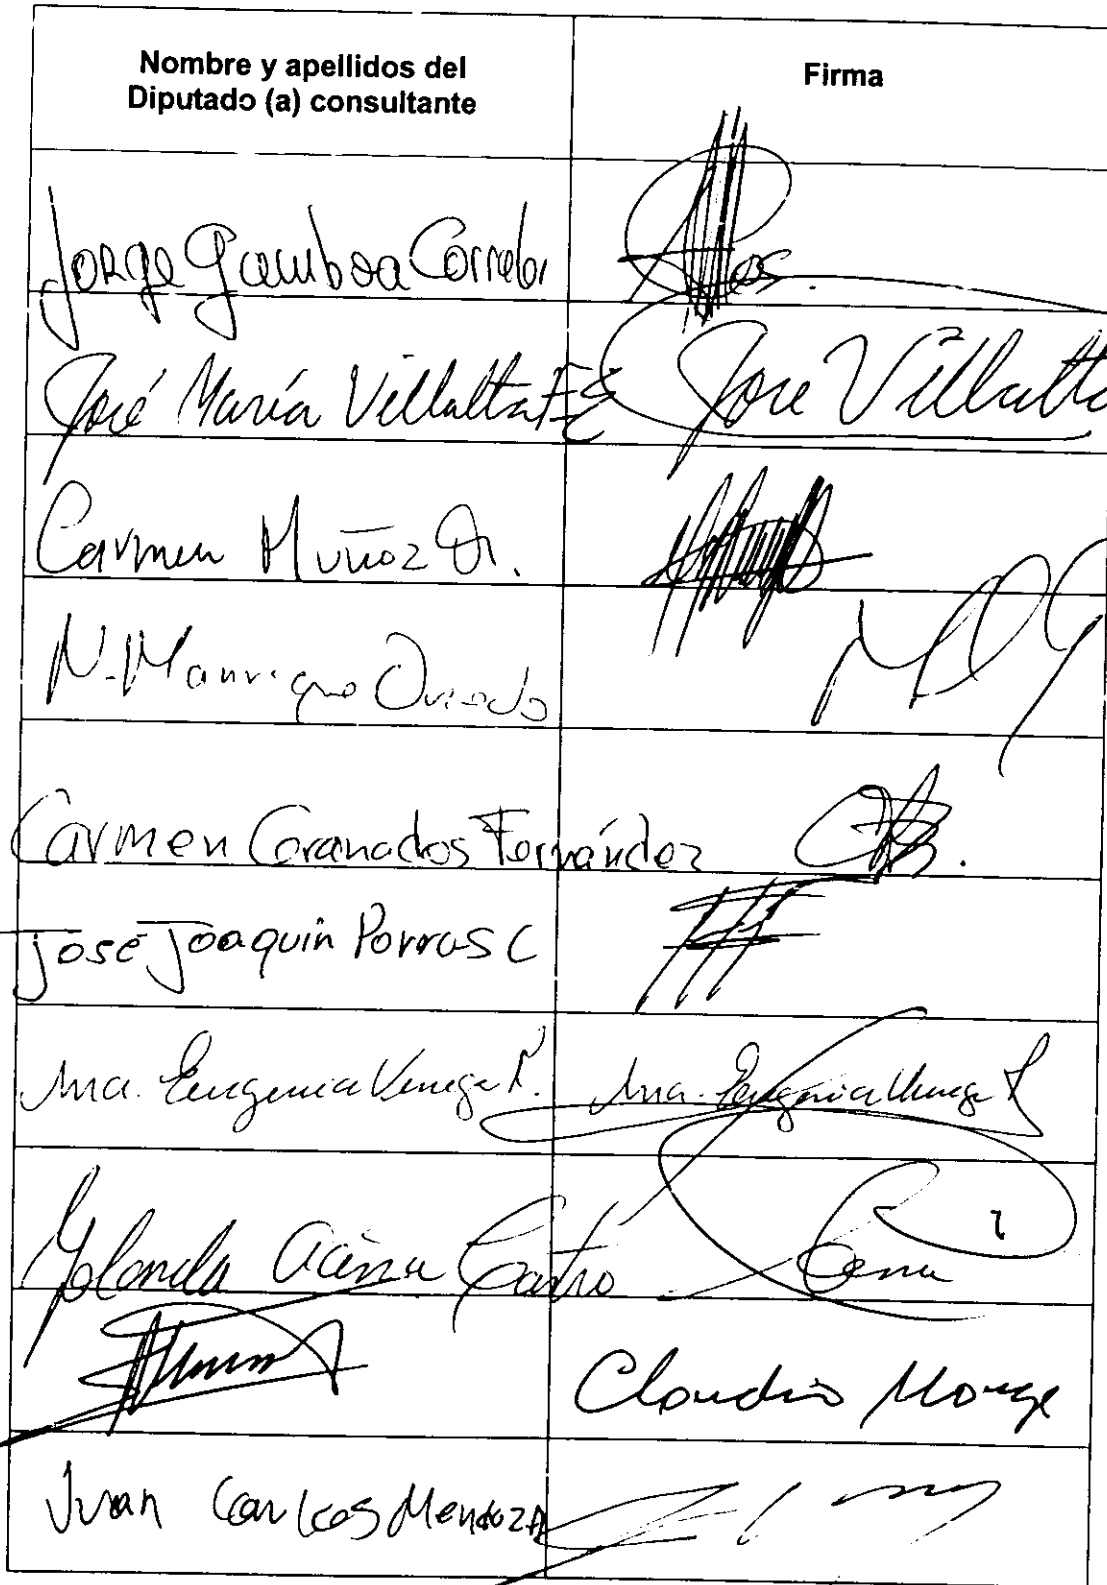 Nombre y apellidos del
Diputado (a) consultante
Firma
Jorge Gamboa Corrales
José María Villalta F-E José Villalta
Carmen Muñoz Q.
N. Manrique Oviedo
Carmen Granados Fernández
José Joaquín Porras C
Ma. Eugenia Venegas R. Ma. Eugenia Venegas R
Yolanda Acuña Castro
Claudio Monge
Juan Carlos Mendoza